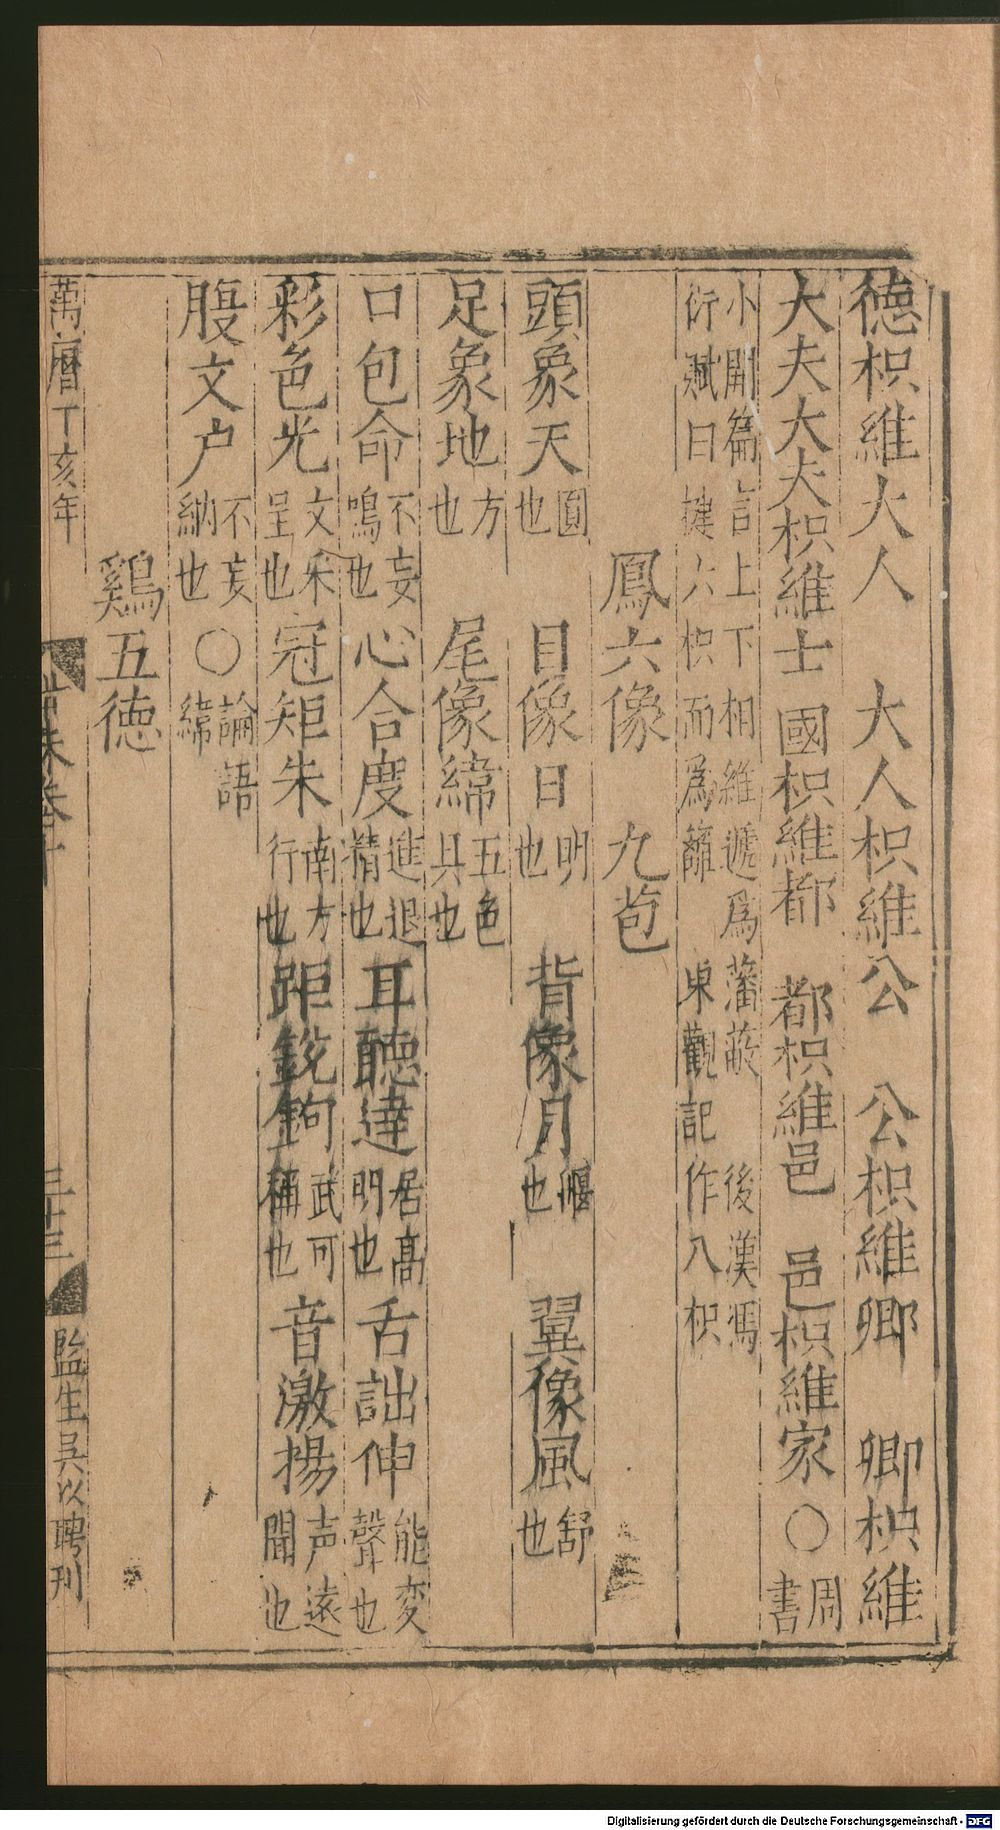 德枳維大人　大人枳維公　公枳維卿　卿枳維
大夫大夫枳維士國枳維都　都枳維邑　邑枳維家〇周書
小開篇言上下相維遞爲藩蔽　後漢馮
衍賦曰揵六枳而爲籬　東觀記作八枳
鳳六像　九苞
頭象天圓也　目像日明也　背像月偃也　翼像風舒也
足象地方也　尾像緯五色具也
口包命不妄鳴也心合度進退精也耳聽達居高明也舌詘伸能変聲也
彩色光文采呈也冠矩朱南方行也距銳鉤武可稱也音激揚声遠聞也
腹文户不妄納也〇論語緯
鷄五德
萬曆丁亥年
三十三
監生吴以聘刊
Digitalisierung gefördert durch die Deutsche Forschungsgemeinschaft - DFG